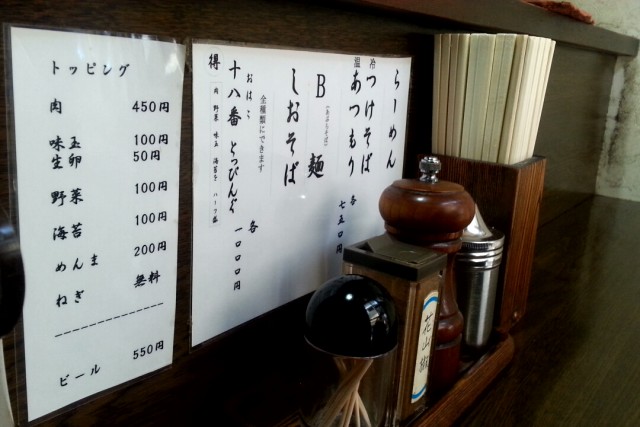 トッピング
肉 450円
味玉 100円
生卵 50円
野菜 100円
海苔 100円
めんま 200円
ねぎ 無料
ビール 550円
らーめん
冷 つけそば
温 あつもり
B麺
しおそば
各 七五〇円
全種類にできます
おはこ
十八番 とっぴんぐ
各 一〇〇〇円
得
肉 野菜 味玉
花山椒